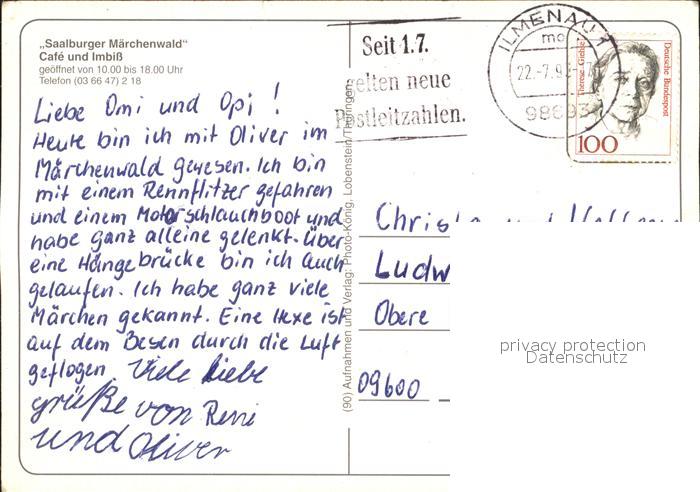 „Saalburger Märchenwald"
Café und Imbiß
geöffnet von 10.00 bis 18.00 Uhr
Telefon (03 66 47) 2 18
Liebe Omi und Opi !
Heute bin ich mit Oliver im
Märchenwald gewesen. Ich bin
mit einem Rennflitzer gefahren
und einem Motorschlauchboot und
habe ganz alleine gelenkt. Über
eine Hängebrücke bin ich auch
gelaufen. Ich habe ganz viele
Märchen gekannt. Eine Hexe ist
auf dem Besen durch die Luft
geflogen. Viele liebe
grüße von
und Oliver
(90) Aufnahmen und Verlag: Photo-König, Lobenstein/Thüringen
Seit 1.7.
gelten neue
Postleitzahlen.
ILMENAU 1
mc
22.-7.93
98693
Therese Giehse
Deutsche Bundespost
100
Ludw
Obere
09600
privacy protection
Datenschutz